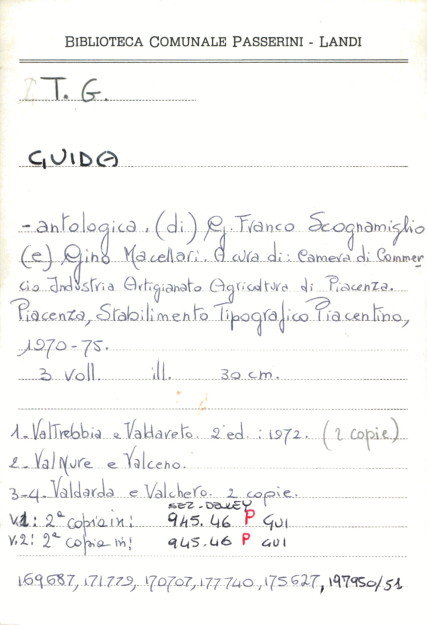 BIBLIOTECA COMUNALE PASSERINI - LANDI
T. G.
GUIDA
- antologica. (di) G. Franco Scognamiglio
(e) Gino Macellari. A cura di: Camera di Commer-
cio Industria Artigianato Agricoltura di Piacenza.
Piacenza, Stabilimento Tipografico Piacentino,
1970-75.
3 voll. ill. 30 cm.
1- ValTrebbia e Valdaveto. 2ª ed.: 1972. (2 copie)
2- ValNure e Valceno.
3-4- Valdarda e Valchero. 2 copie.
SEZ. DEWEY
V.1: 2ª copia in: 945.46 P GUI
V.2: 2ª copia in: 945.46 P GUI
169687, 171779, 170707, 177740, 175627, 197950/51